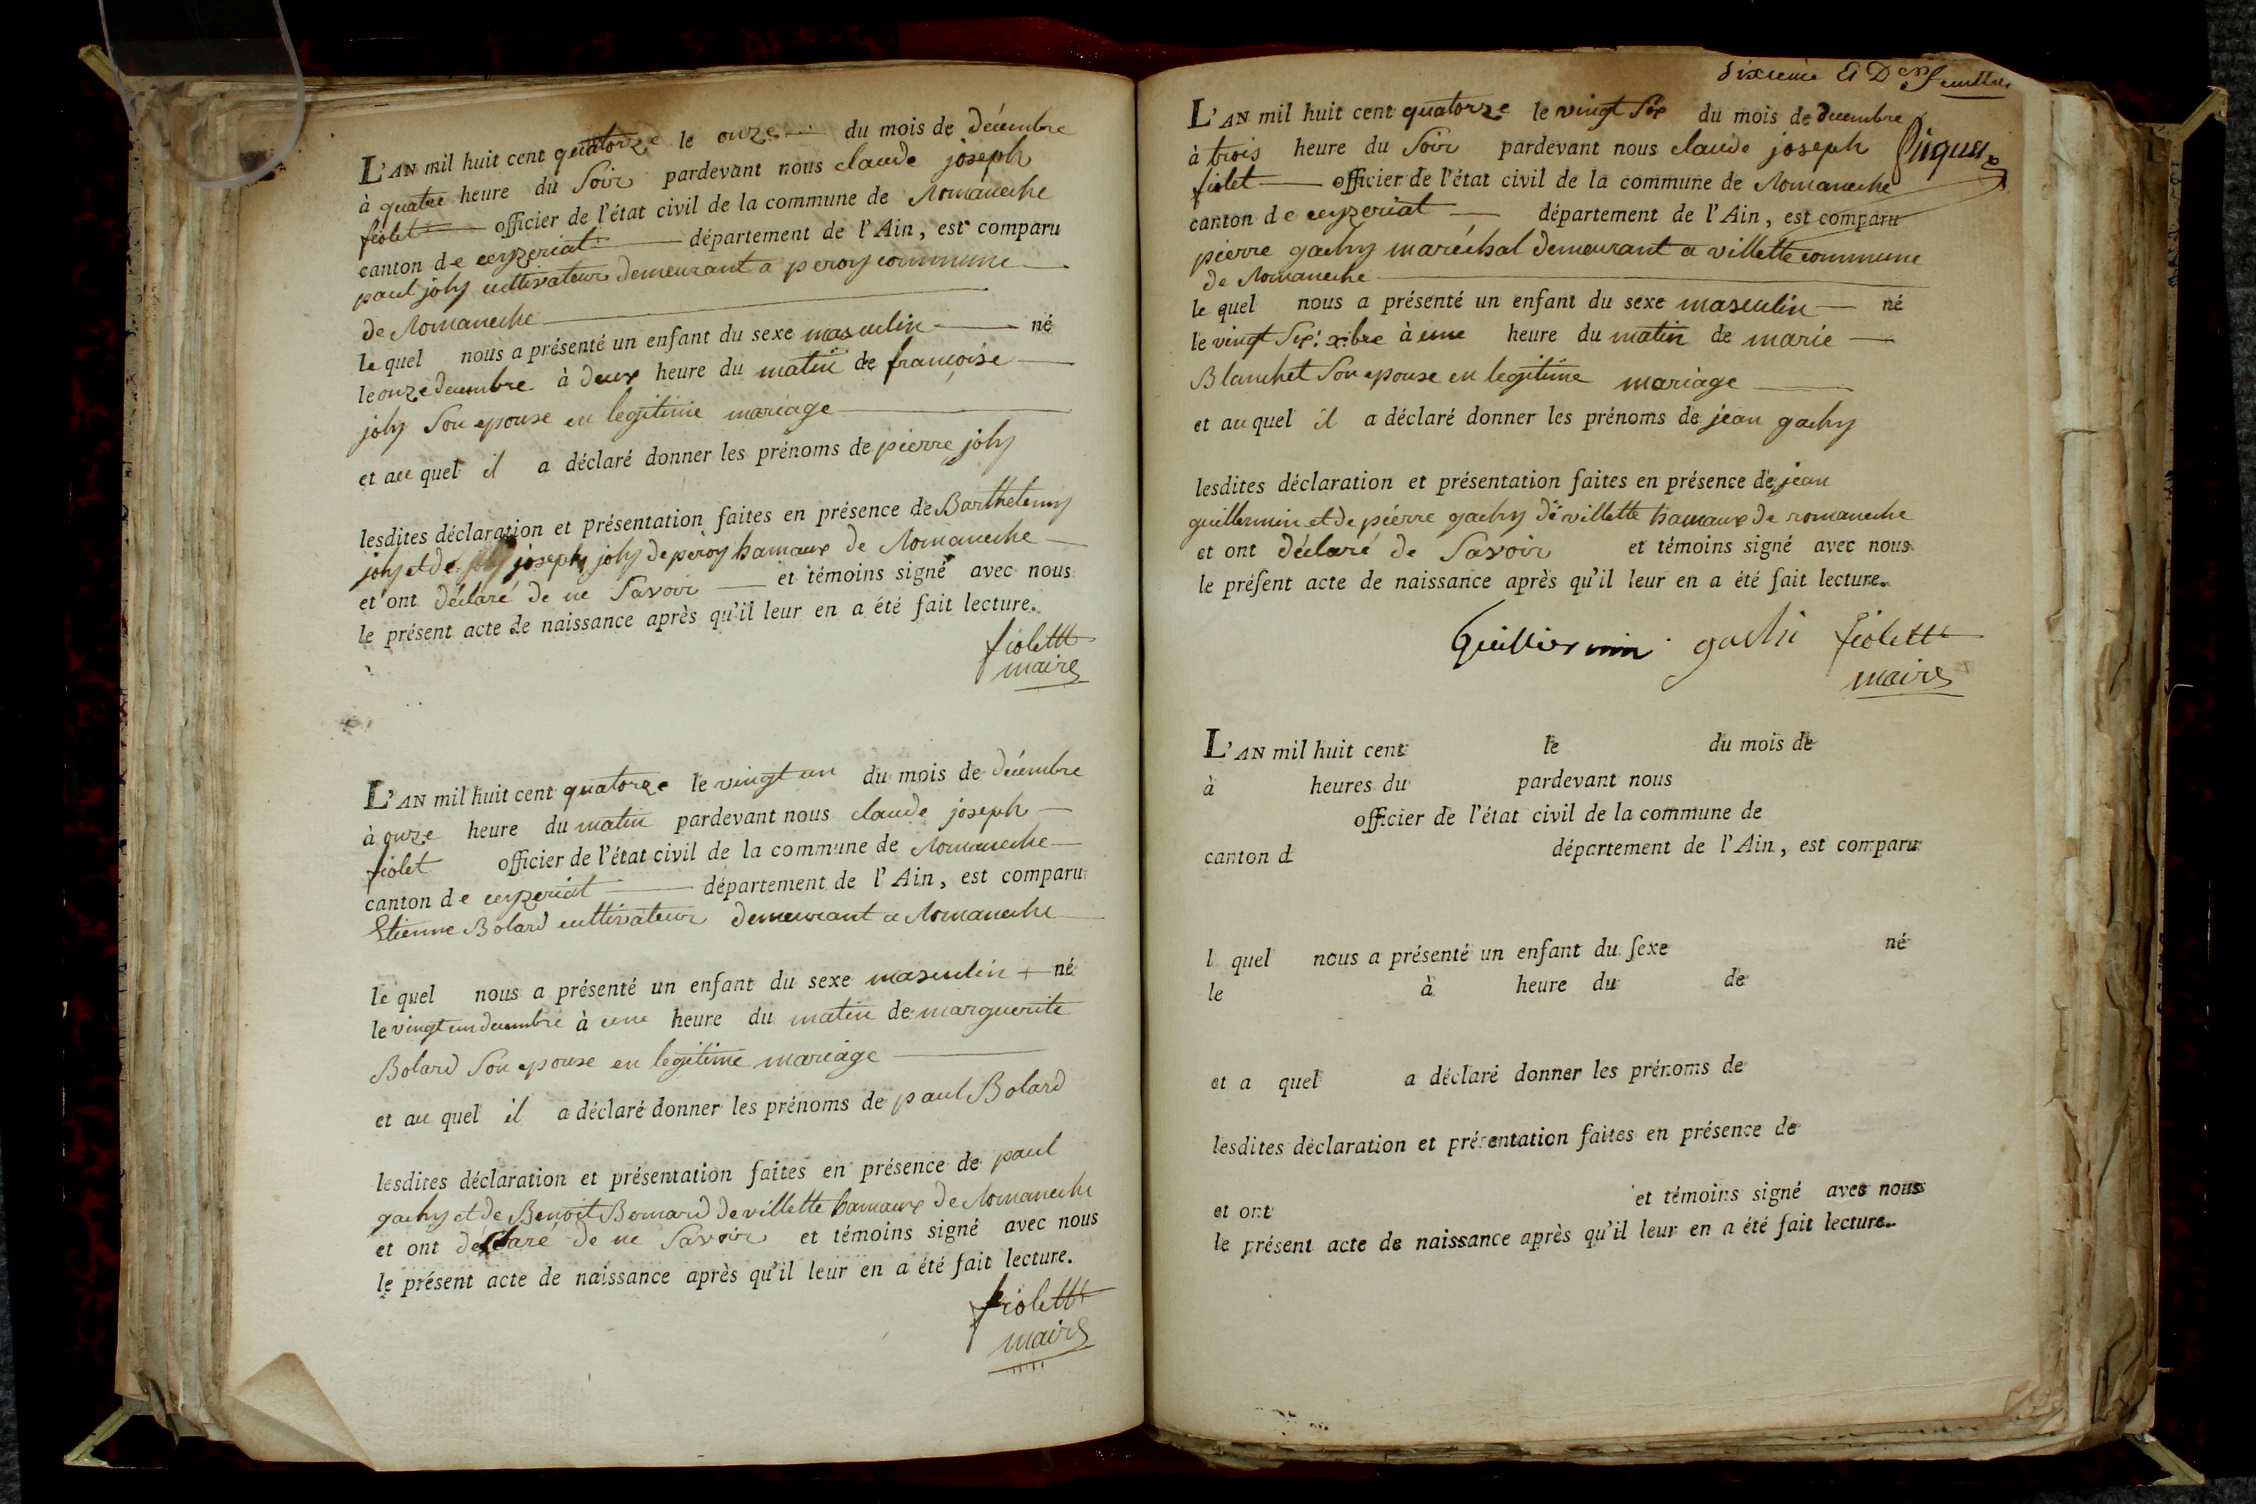 L'AN mil huit cent quatorze le onze du mois de décembre
à quatre heure du Soir pardevant nous claude joseph
fiolet officier de l'état civil de la commune de Romaneche
canton de ceyzeriat département de l'Ain, est comparu
paul joly cultivateur demeurant a peroy commune
de Romaneche
le quel nous a présenté un enfant du sexe masculin né
le onze decembre à deux heure du matin de françoise
joly Son epouse en legitime mariage
et au quel il a déclaré donner les prénoms de pierre joly
lesdites déclaration et présentation faites en présence de Barthelemy
joly et de joseph joly de peroy hamaux de Romaneche
et ont déclaré de ne Savoir et témoins signé avec nous
le présent acte de naissance après qu'il leur en a été fait lecture.
fiolett
maire
L'AN mil huit cent quatorze le vingt un du mois de décembre
à onze heure du matin pardevant nous claude joseph
fiolet officier de l'état civil de la commune de Romaneche
canton de ceyzeriat département de l'Ain, est comparu
Etienne Bolard cultivateur demeurant a Romaneche
le quel nous a présenté un enfant du sexe masculin né
le vingt un decembre à une heure du matin de marguerite
Bolard Son epouse en legitime mariage
et au quel il a déclaré donner les prénoms de paul Bolard
lesdites déclaration et présentation faites en présence de paul
gachy et de Benoit Bernard de villette hamaux de Romaneche
et ont déclaré de ne Savoir et témoins signé avec nous
le présent acte de naissance après qu'il leur en a été fait lecture.
fiolett
maire
Sixieme Et Der feuillet
L'AN mil huit cent quatorze le vingt Six du mois de decembre
à trois heure du Soir pardevant nous claude joseph
fiolet officier de l'état civil de la commune de Romaneche
canton de ceyzeriat département de l'Ain, est comparu
pierre gachy maréchal demeurant a villette commune
de Romaneche
le quel nous a présenté un enfant du sexe masculin né
le vingt Six xbre à une heure du matin de marie
Blanchet Son epouse en legitime mariage
et au quel il a déclaré donner les prénoms de jean gachy
lesdites déclaration et présentation faites en présence de jean
guillermin et de pierre gachy de villette hamaux de romaneche
et ont déclaré de Savoir et témoins signé avec nous
le présent acte de naissance après qu'il leur en a été fait lecture.
Guillermin gachi fiolett
maire
L'AN mil huit cent le du mois de
à heures du pardevant nous
officier de l'état civil de la commune de
canton d département de l'Ain, est comparu
l quel nous a présenté un enfant du sexe né
le à heure du de
et a quel a déclaré donner les prénoms de
lesdites déclaration et présentation faites en présence de
et ont et témoins signé avec nous
le présent acte de naissance après qu'il leur en a été fait lecture.